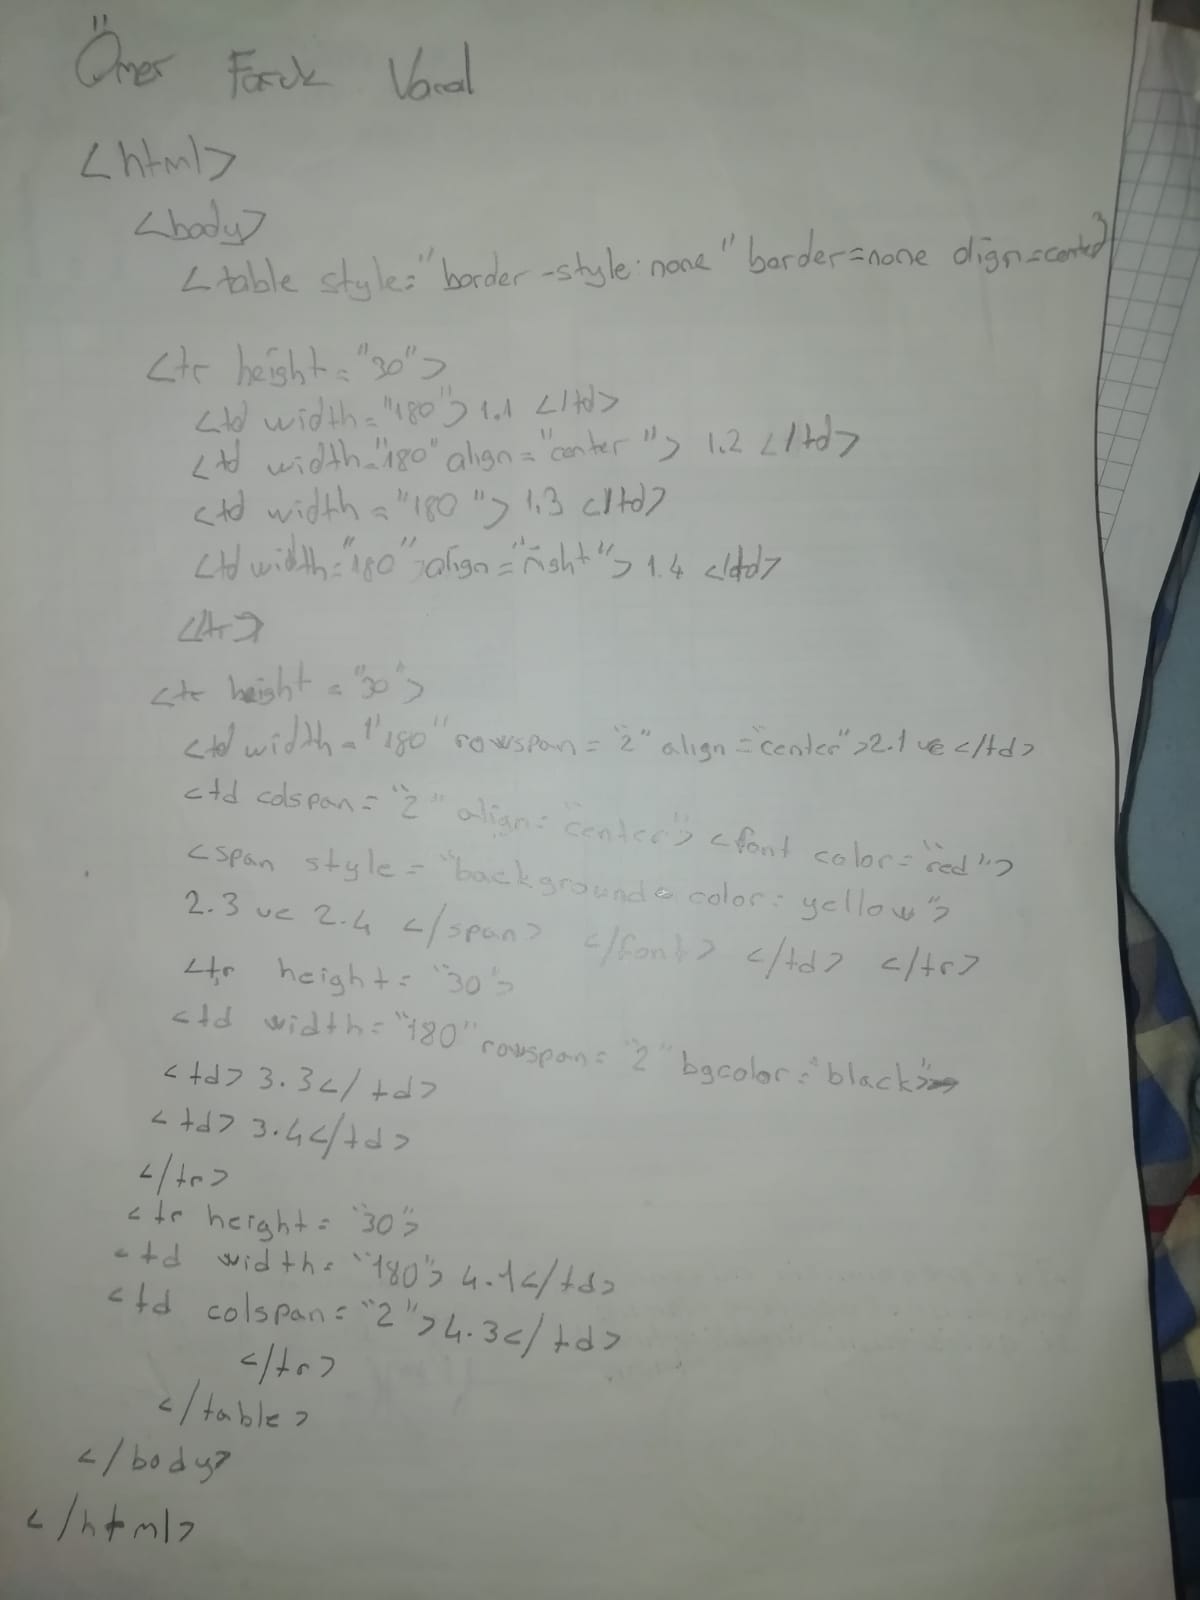 Ömer Faruk Vural
<html>
<body>
<table style="border-style:none" border=none align=center>
<tr height="30">
<td width="180"> 1.1 </td>
<td width="180" align="center"> 1.2 </td>
<td width="180"> 1.3 </td>
<td width="180" align="right"> 1.4 </td>
</tr>
<tr height="30">
<td width="180" rowspan="2" align="center">2.1 ve </td>
<td colspan="2" align="center"> <font color="red">
<span style="background-color: yellow">
2.3 ve 2.4 </span> </font> </td> </tr>
<tr height="30">
<td width="180" rowspan="2" bgcolor="black">
<td> 3.3</td>
<td> 3.4</td>
</tr>
<tr height="30">
<td width="180"> 4.1</td>
<td colspan="2">4.3</td>
</tr>
</table>
</body>
</html>